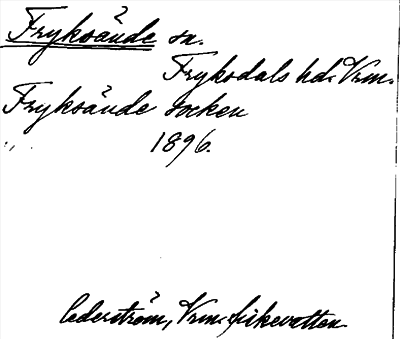 Fryksände sn.
Fryksdals hd. Vrm.
Fryksände socken
1896.
Cederström, Vrm. fiskevatten